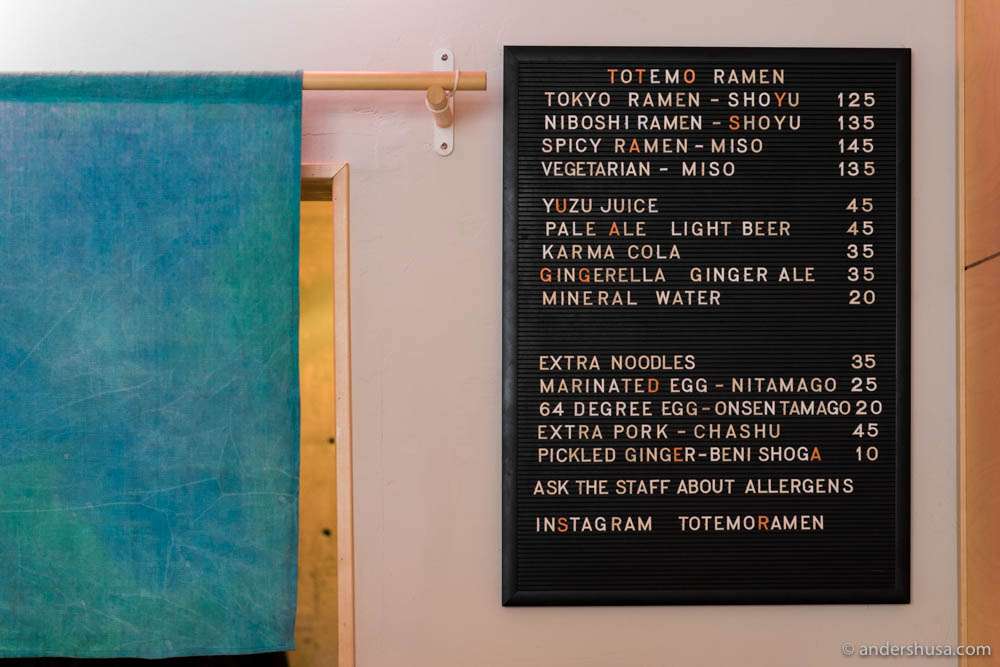 TOTEMO RAMEN
TOKYO RAMEN - SHOYU 125
NIBOSHI RAMEN - SHOYU 135
SPICY RAMEN - MISO 145
VEGETARIAN - MISO 135
YUZU JUICE 45
PALE ALE LIGHT BEER 45
KARMA COLA 35
GINGERELLA GINGER ALE 35
MINERAL WATER 20
EXTRA NOODLES 35
MARINATED EGG - NITAMAGO 25
64 DEGREE EGG - ONSEN TAMAGO 20
EXTRA PORK - CHASHU 45
PICKLED GINGER - BENI SHOGA 10
ASK THE STAFF ABOUT ALLERGENS
INSTAGRAM TOTEMORAMEN
© andershusa.com